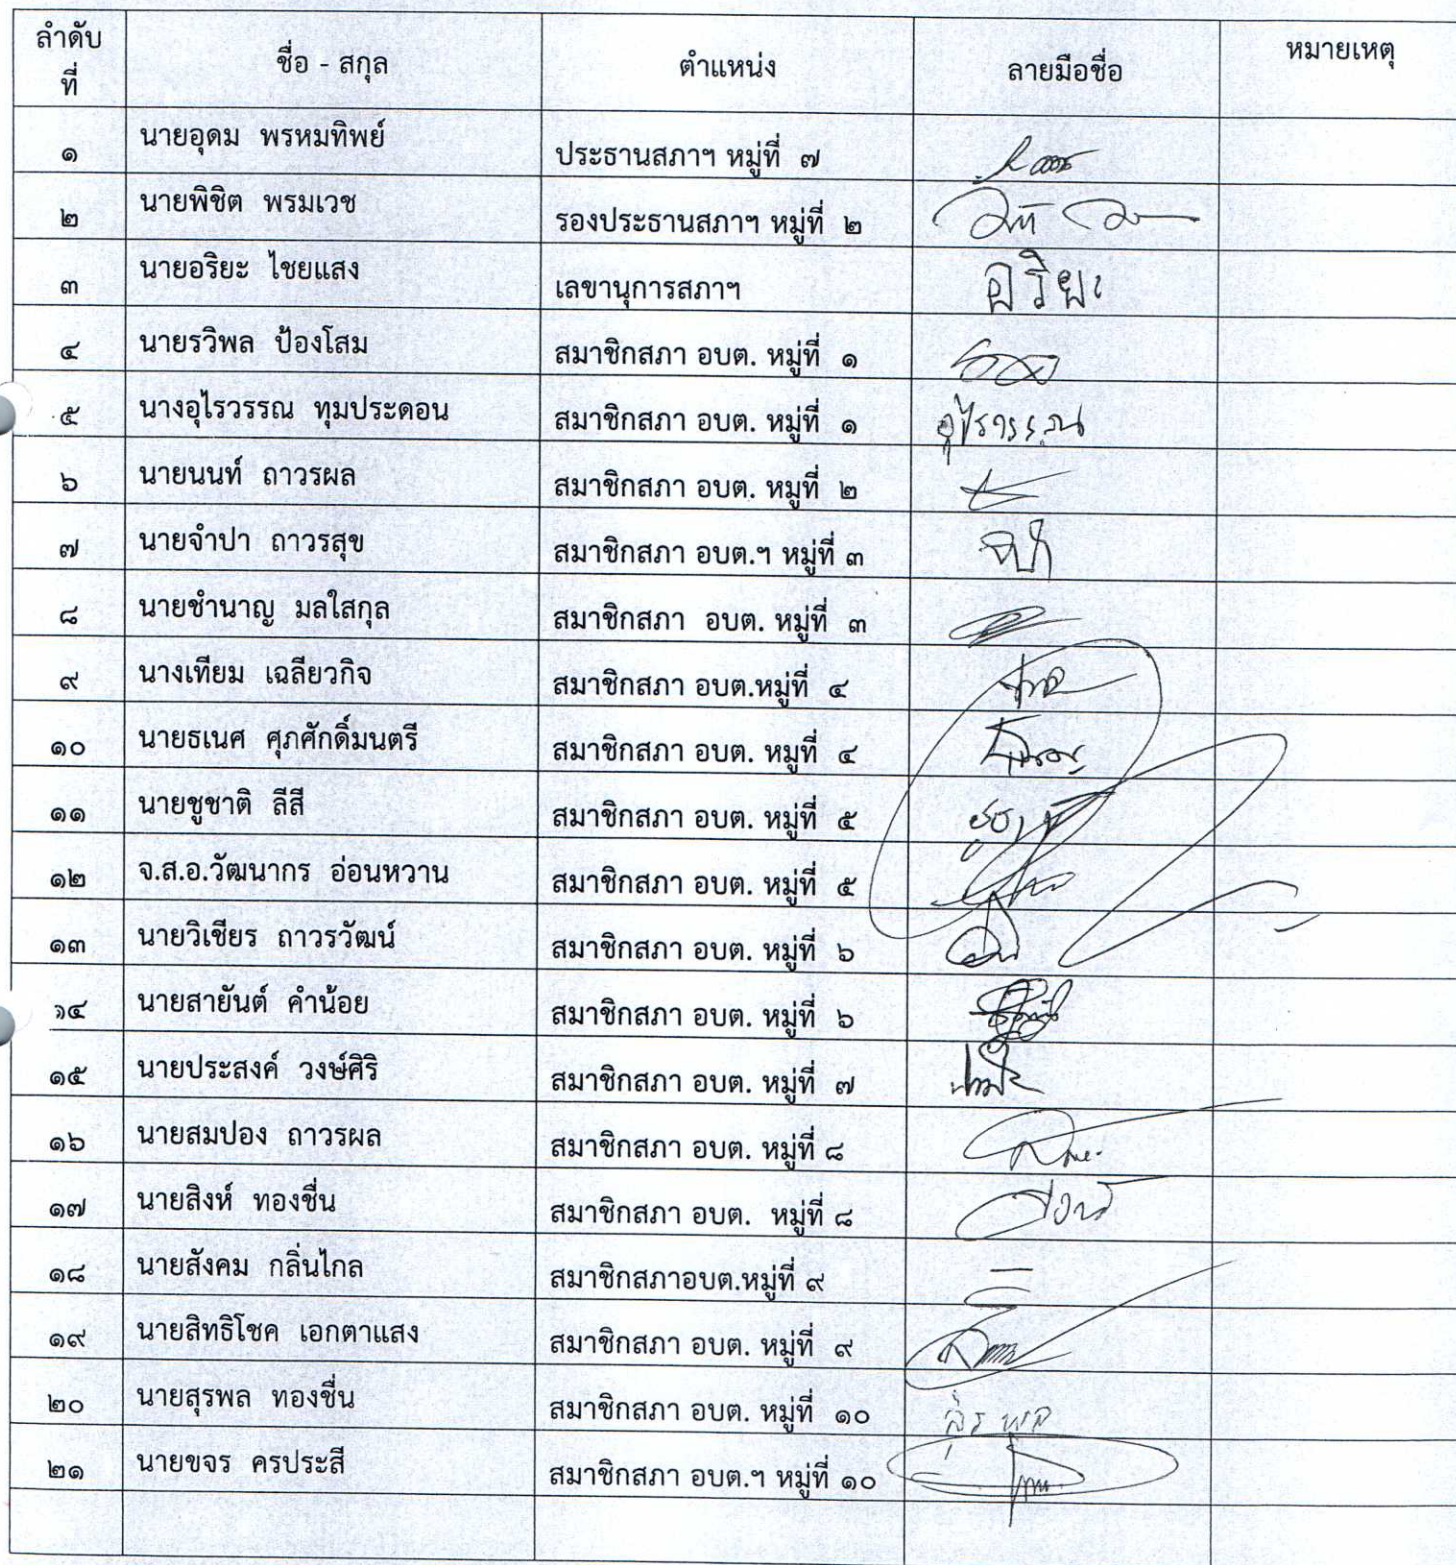 ลำดับที่ ชื่อ - สกุล ตำแหน่ง ลายมือชื่อ หมายเหตุ
๑ นายอุดม พรหมทิพย์ ประธานสภาฯ หมู่ที่ ๗
๒ นายพิชิต พรมเวช รองประธานสภาฯ หมู่ที่ ๒
๓ นายอริยะ ไชยแสง เลขานุการสภาฯ อริยะ
๔ นายรวิพล ป้องโสม สมาชิกสภา อบต. หมู่ที่ ๑
๕ นางอุไรวรรณ ทุมประดอน สมาชิกสภา อบต. หมู่ที่ ๑ อุไรวรรณ
๖ นายนนท์ ถาวรผล สมาชิกสภา อบต. หมู่ที่ ๒
๗ นายจำปา ถาวรสุข สมาชิกสภา อบต.ฯ หมู่ที่ ๓
๘ นายชำนาญ มลใสกุล สมาชิกสภา อบต. หมู่ที่ ๓
๙ นางเทียม เฉลียวกิจ สมาชิกสภา อบต.หมู่ที่ ๔
๑๐ นายธเนศ ศุภศักดิ์มนตรี สมาชิกสภา อบต. หมู่ที่ ๔
๑๑ นายชูชาติ ลีสี สมาชิกสภา อบต. หมู่ที่ ๕
๑๒ จ.ส.อ.วัฒนากร อ่อนหวาน สมาชิกสภา อบต. หมู่ที่ ๕
๑๓ นายวิเชียร ถาวรวัฒน์ สมาชิกสภา อบต. หมู่ที่ ๖
๑๔ นายสายันต์ คำน้อย สมาชิกสภา อบต. หมู่ที่ ๖
๑๕ นายประสงค์ วงษ์ศิริ สมาชิกสภา อบต. หมู่ที่ ๗
๑๖ นายสมปอง ถาวรผล สมาชิกสภา อบต. หมู่ที่ ๘
๑๗ นายสิงห์ ทองชื่น สมาชิกสภา อบต. หมู่ที่ ๘
๑๘ นายสังคม กลิ่นไกล สมาชิกสภาอบต.หมู่ที่ ๙
๑๙ นายสิทธิโชค เอกตาแสง สมาชิกสภา อบต. หมู่ที่ ๙
๒๐ นายสุรพล ทองชื่น สมาชิกสภา อบต. หมู่ที่ ๑๐ สุรพล
๒๑ นายขจร ครประสี สมาชิกสภา อบต.ฯ หมู่ที่ ๑๐